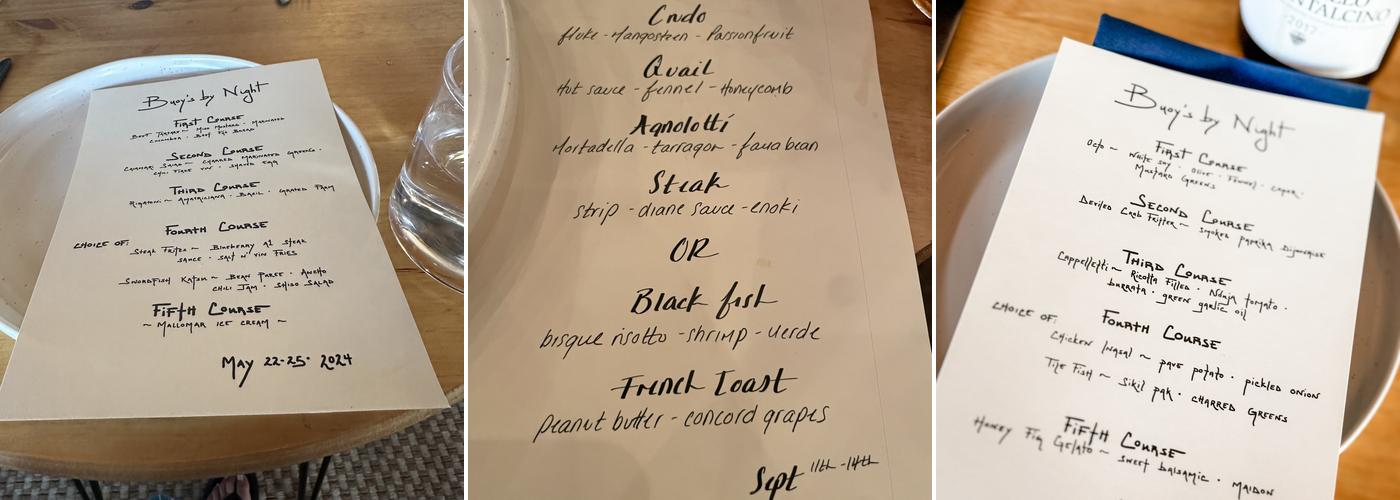 Buoy's by Night
First Course
Beef Tartare ~ Miso Mustard · Marinated
Cucumber · Beef Fat Bread
Second Course
Caesar Salad ~ Charred Marinated Greens ·
Shaved Egg
Third Course
Rigatoni ~ Amatriciana · Basil · Grated Parm
Fourth Course
Choice of:
Steak Frites ~ Blueberry A1 Steak
Sauce · Salt N' Vin Fries
Swordfish Katsu ~ Bean Puree · Ancho
Chili Jam · Shiso Salad
Fifth Course
~ Mallomar Ice Cream ~
May 22-25· 2024
Crudo
fluke - Mangosteen - Passionfruit
Quail
Hot sauce - fennel - Honeycomb
Agnolotti
Mortadella - tarragon - faua bean
Steak
strip - diane sauce - enoki
OR
Black fish
bisque risotto - shrimp - Verde
French Toast
Peanut butter - concord grapes
Sept 11th - 14th
NTALCINO
2017
Buoy's by Night
First Course
Octo ~ White Soy · Olive · Fennel · Caper ·
Mustard Greens
Second Course
Deviled Crab Fritter ~ Smoked Paprika Dijonaise
Third Course
Cappelletti ~ Ricotta Filled · Nduja tomato ·
burrata · green garlic oil
Fourth Course
Choice of:
Chicken Inasal ~ pave potato · pickled onion
Tile Fish ~ Sikil pak · Charred Greens
Fifth Course
Honey Fig Gelato ~ sweet balsamic · Maldon